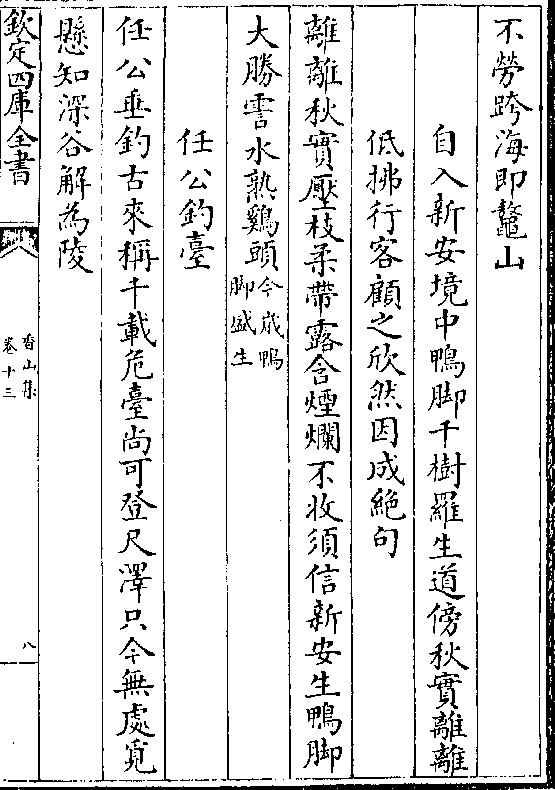 不勞跨海即鼇山
自入新安境中鴨脚千樹羅生道傍秋實離離
低拂行客顧之欣然因成絶句
離離秋實壓枝柔帶露含煙爛不收須信新安生鴨脚
大勝霅水熟鷄頭今歲鴨
脚盛生
任公釣臺
任公垂釣古來稱千載危臺尚可登尺澤只今無處覓
懸知深谷解為陵
欽定四庫全書
香山集
卷十三
八